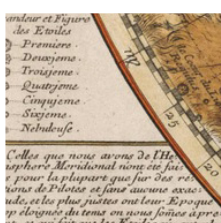 andeur et Figure
des Etoiles
Premiere.
Deuxieme.
Troisieme.
Quatrieme.
Cinquieme.
Sixieme.
Nebuleuse.
20
25
Celles que nous avons de l'He
isphere Meridional n'ont été fai
e pour la plupart que sur des re
ions de Pilotes et sans aucune exac
ude, et les plus justes ont leur Epoque
op éloignée du tems on nous somes a pre